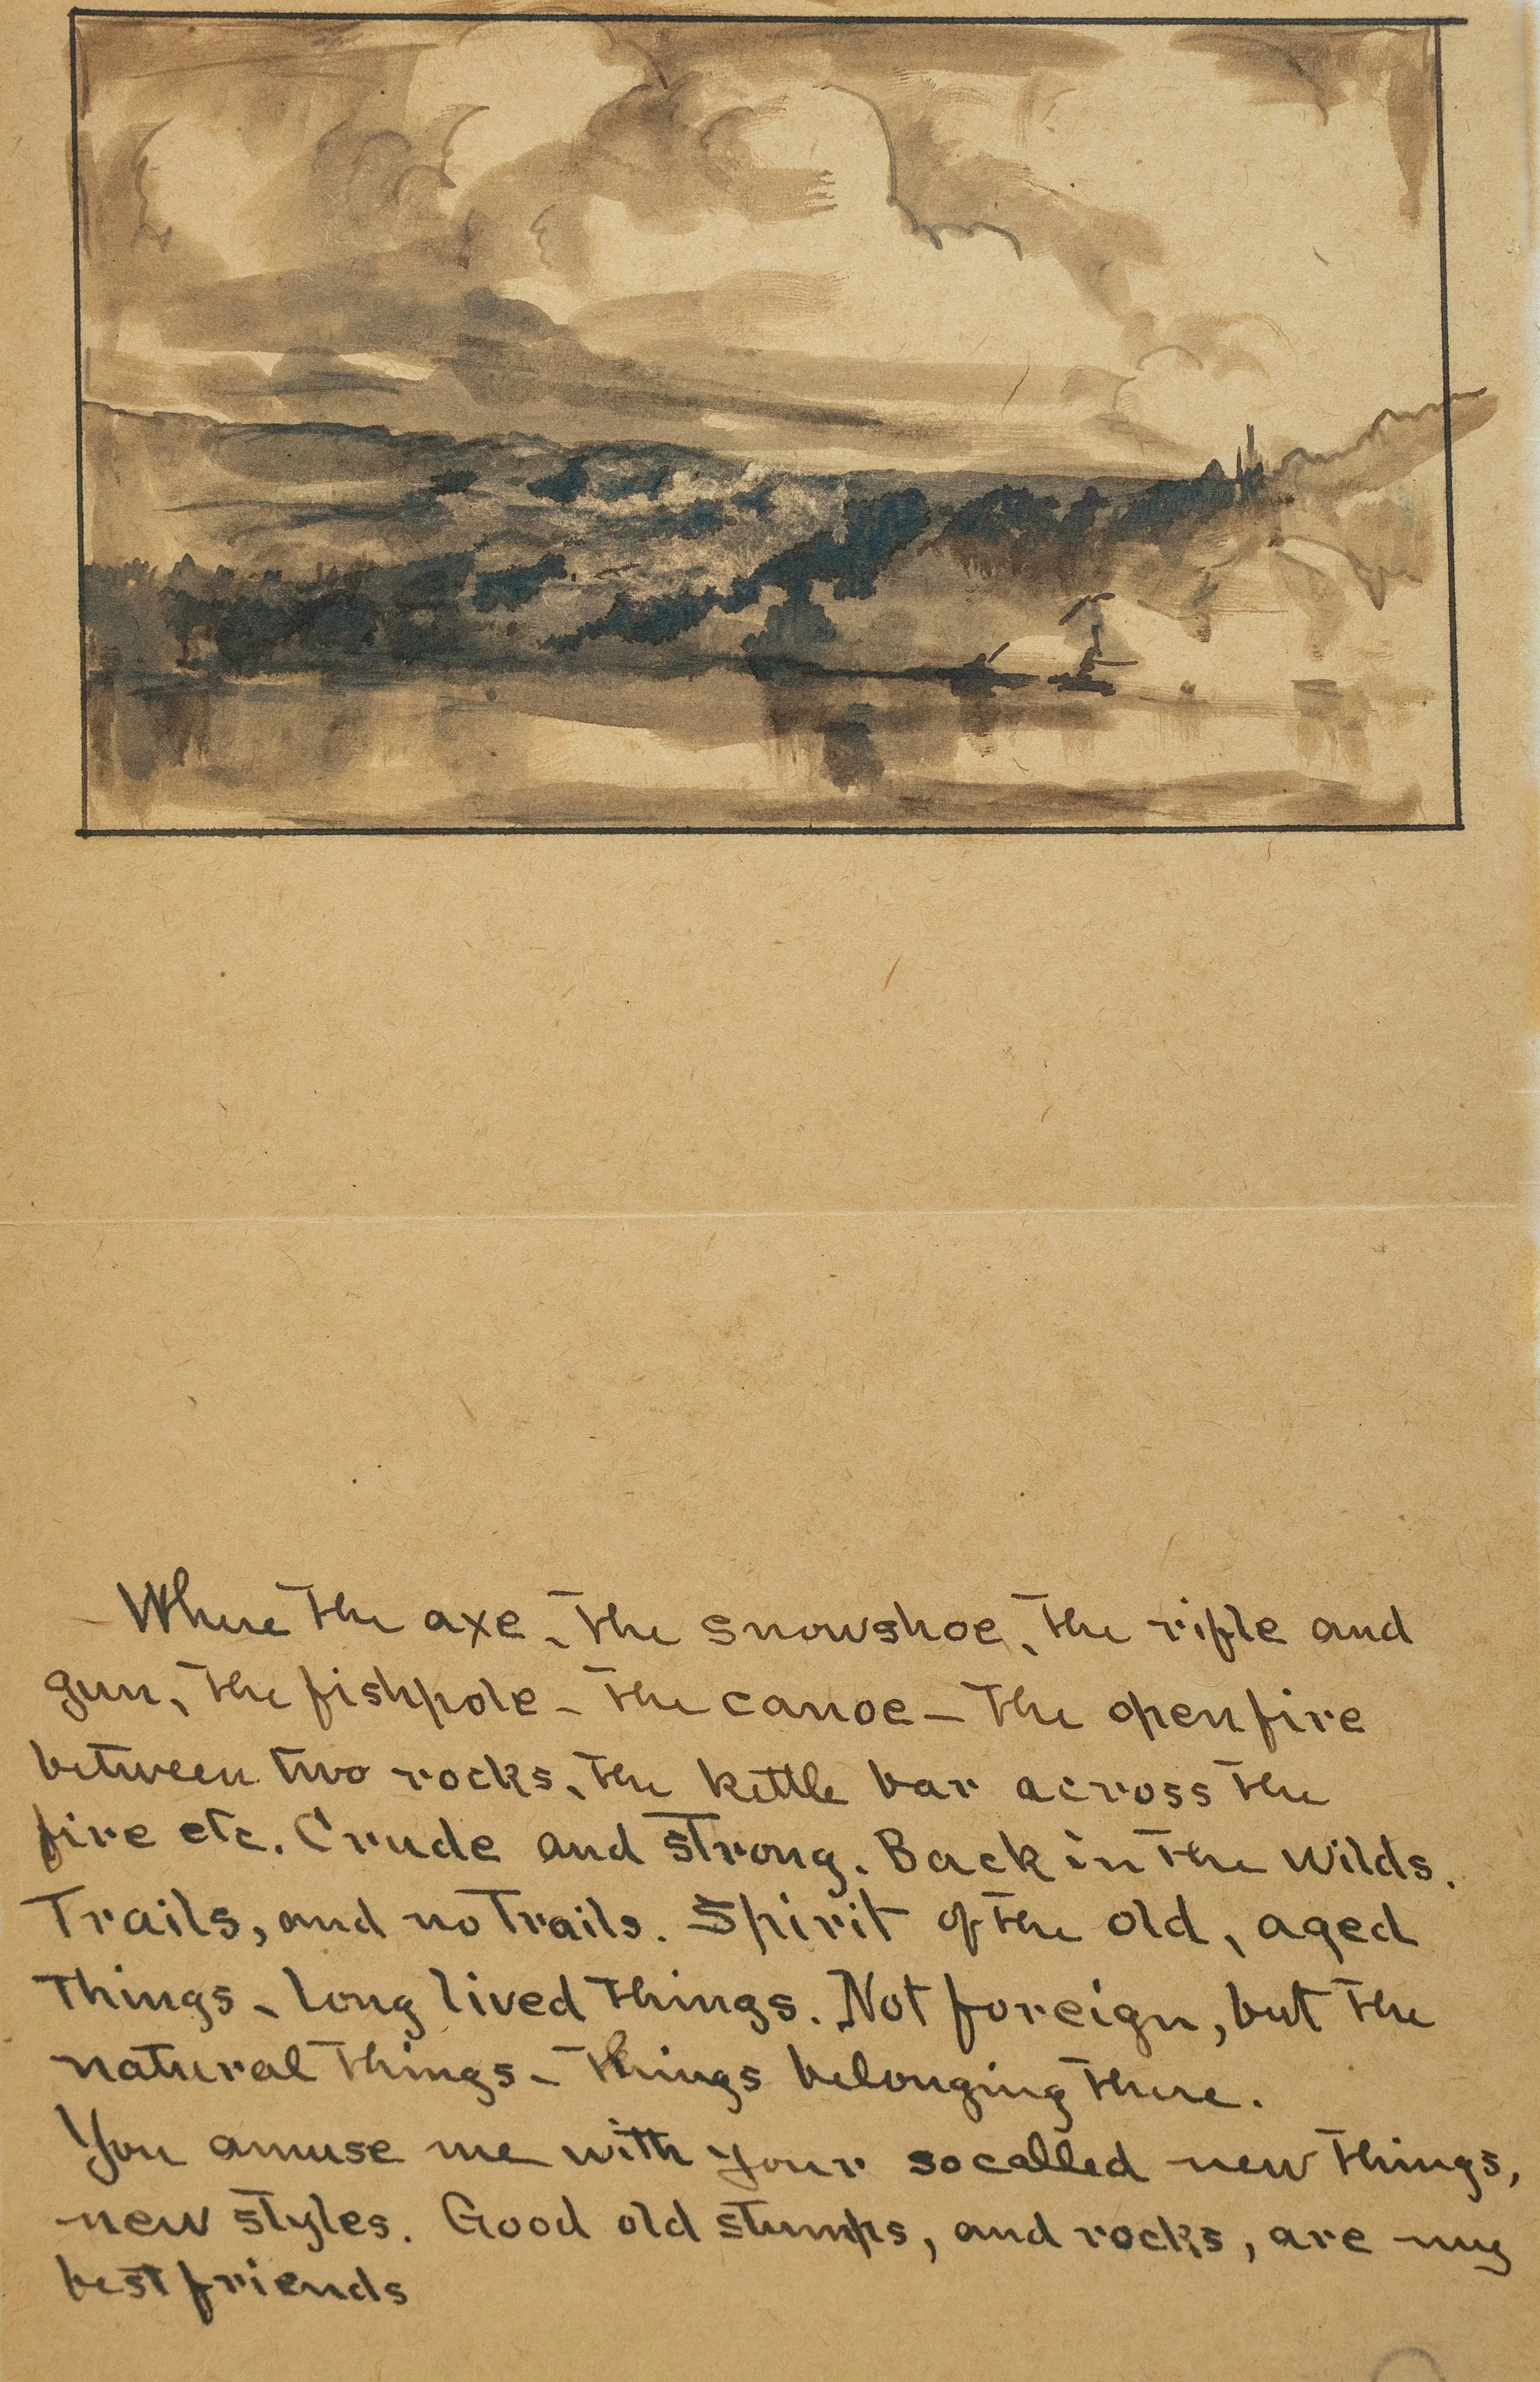 Where the axe, the snowshoe, the rifle and
gun, the fishpole - the canoe - The open fire
between two rocks, the kettle bar across the
fire etc. Crude and strong. Back in the wilds.
Trails, and no trails. Spirit of the old, aged
things - long lived things. Not foreign, but the
natural things - things belonging there.
You amuse me with your socalled new things,
new styles. Good old stumps, and rocks, are my
best friends